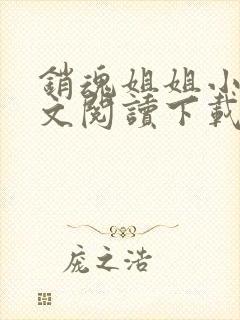 銷魂姐姐小
文閱讀下載
庞之浩